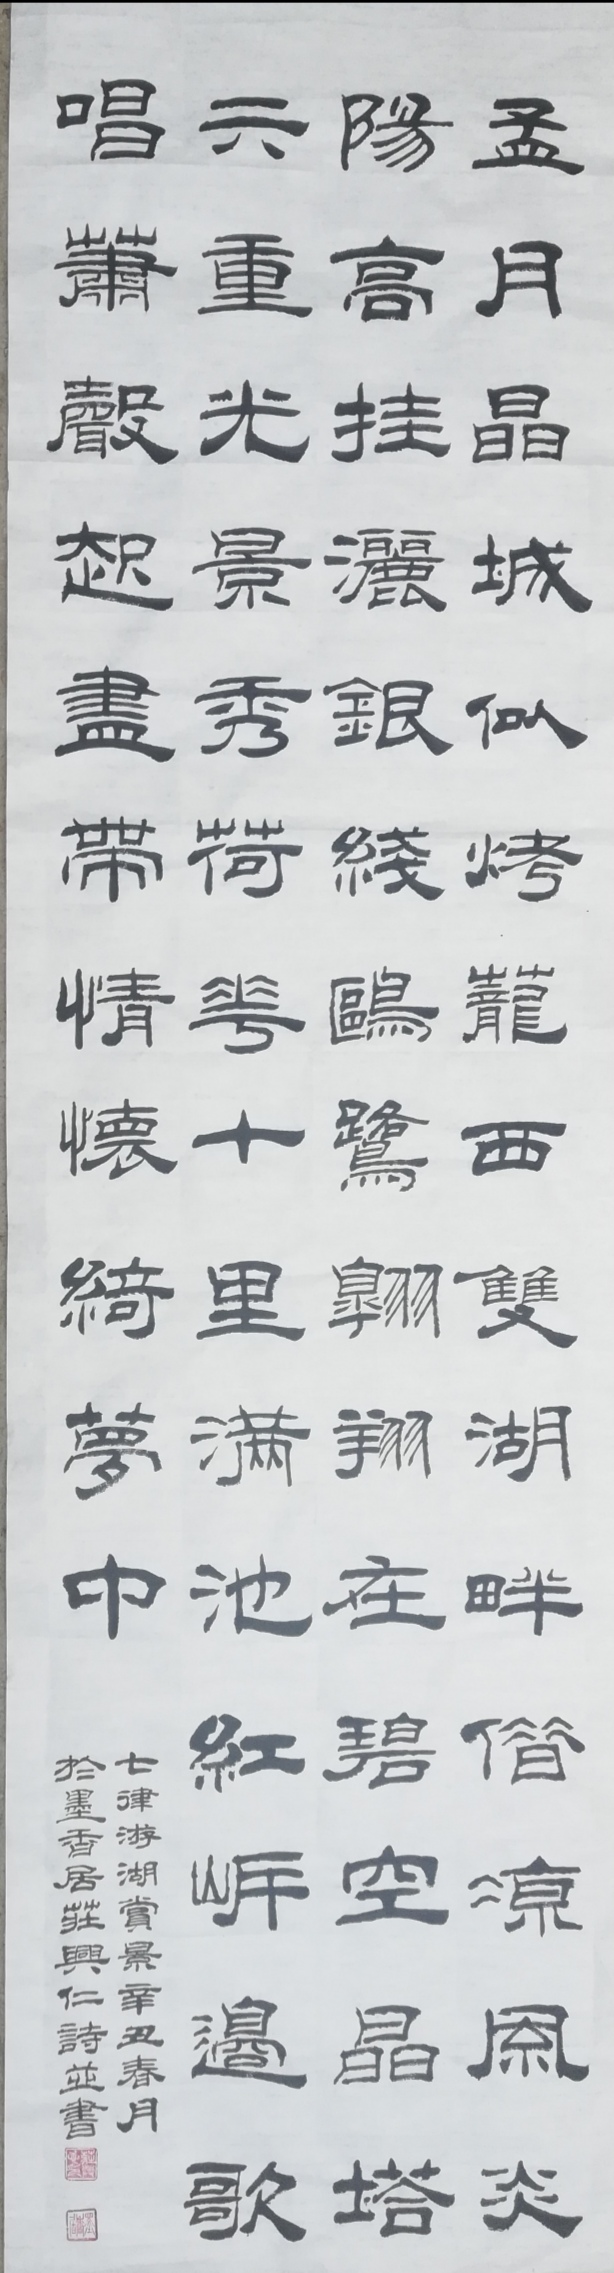 孟月晶城似烤蘢西雙湖畔偕涼風炎
陽高挂灑銀綫鷗鷺翱翔在碧空晶塔
六重光景秀荷花十里滿池紅岸邊歌
唱蕭聲起盡帶情懷綺夢中
七律游湖賞景辛丑春月
於墨香居莊興仁詩並書